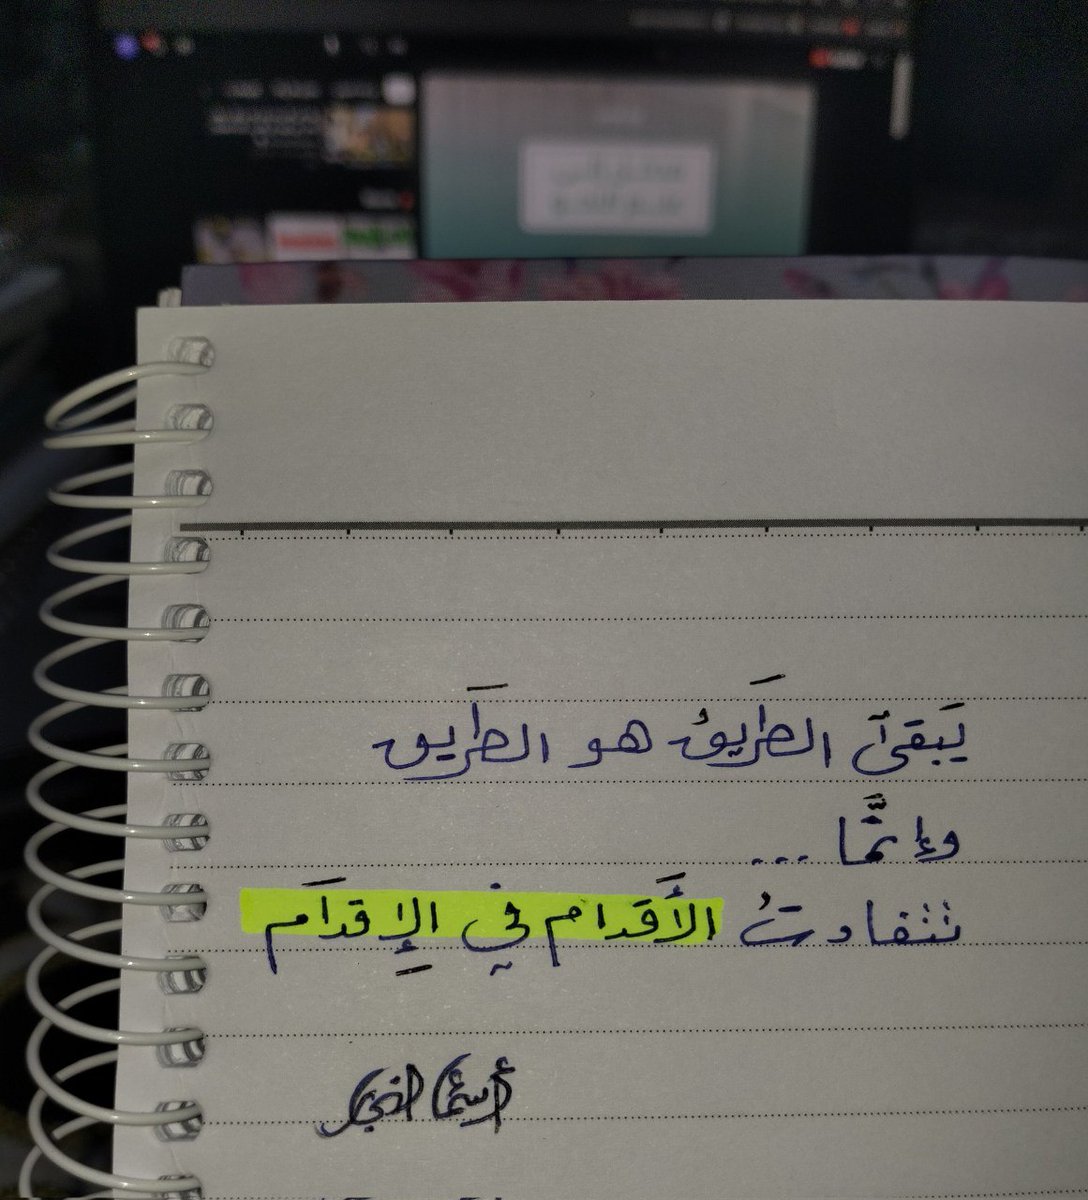 يَبقىٓ الطَريقُ هو الطَريق
وإنَّما ...
تتفاوتُ الأَقدام في الإِقدَام